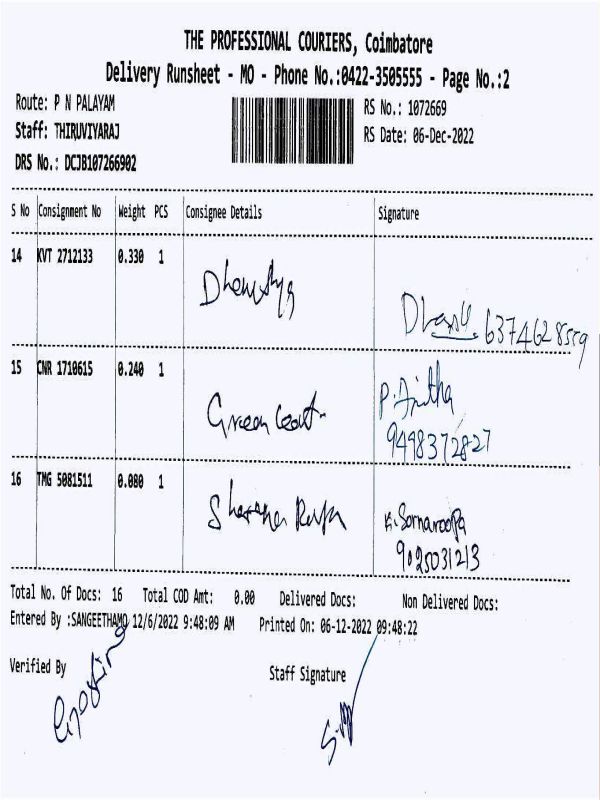 THE PROFESSIONAL COURIERS, Coimbatore
Delivery Runsheet - MO - Phone No.:0422-3505555 - Page No.:2
Route: P N PALAYAM
RS No.: 1072669
Staff: THIRUVIYARAJ
RS Date: 06-Dec-2022
DRS No.: DCJB107266902
S No Consignment No Weight PCS Consignee Details Signature
14 KVT 2712133 0.330 1
6374628559
15 CNR 1710615 0.240 1
P. Anitha
Green
9498372827
16 TMG 5081511 0.080 1
K. Sornaroopa
9025031213
Total No. Of Docs: 16 Total COD Amt: 0.00 Delivered Docs: Non Delivered Docs:
Entered By :SANGEETHAMO 12/6/2022 9:48:09 AM Printed On: 06-12-2022 09:48:22
Verified By Staff Signature